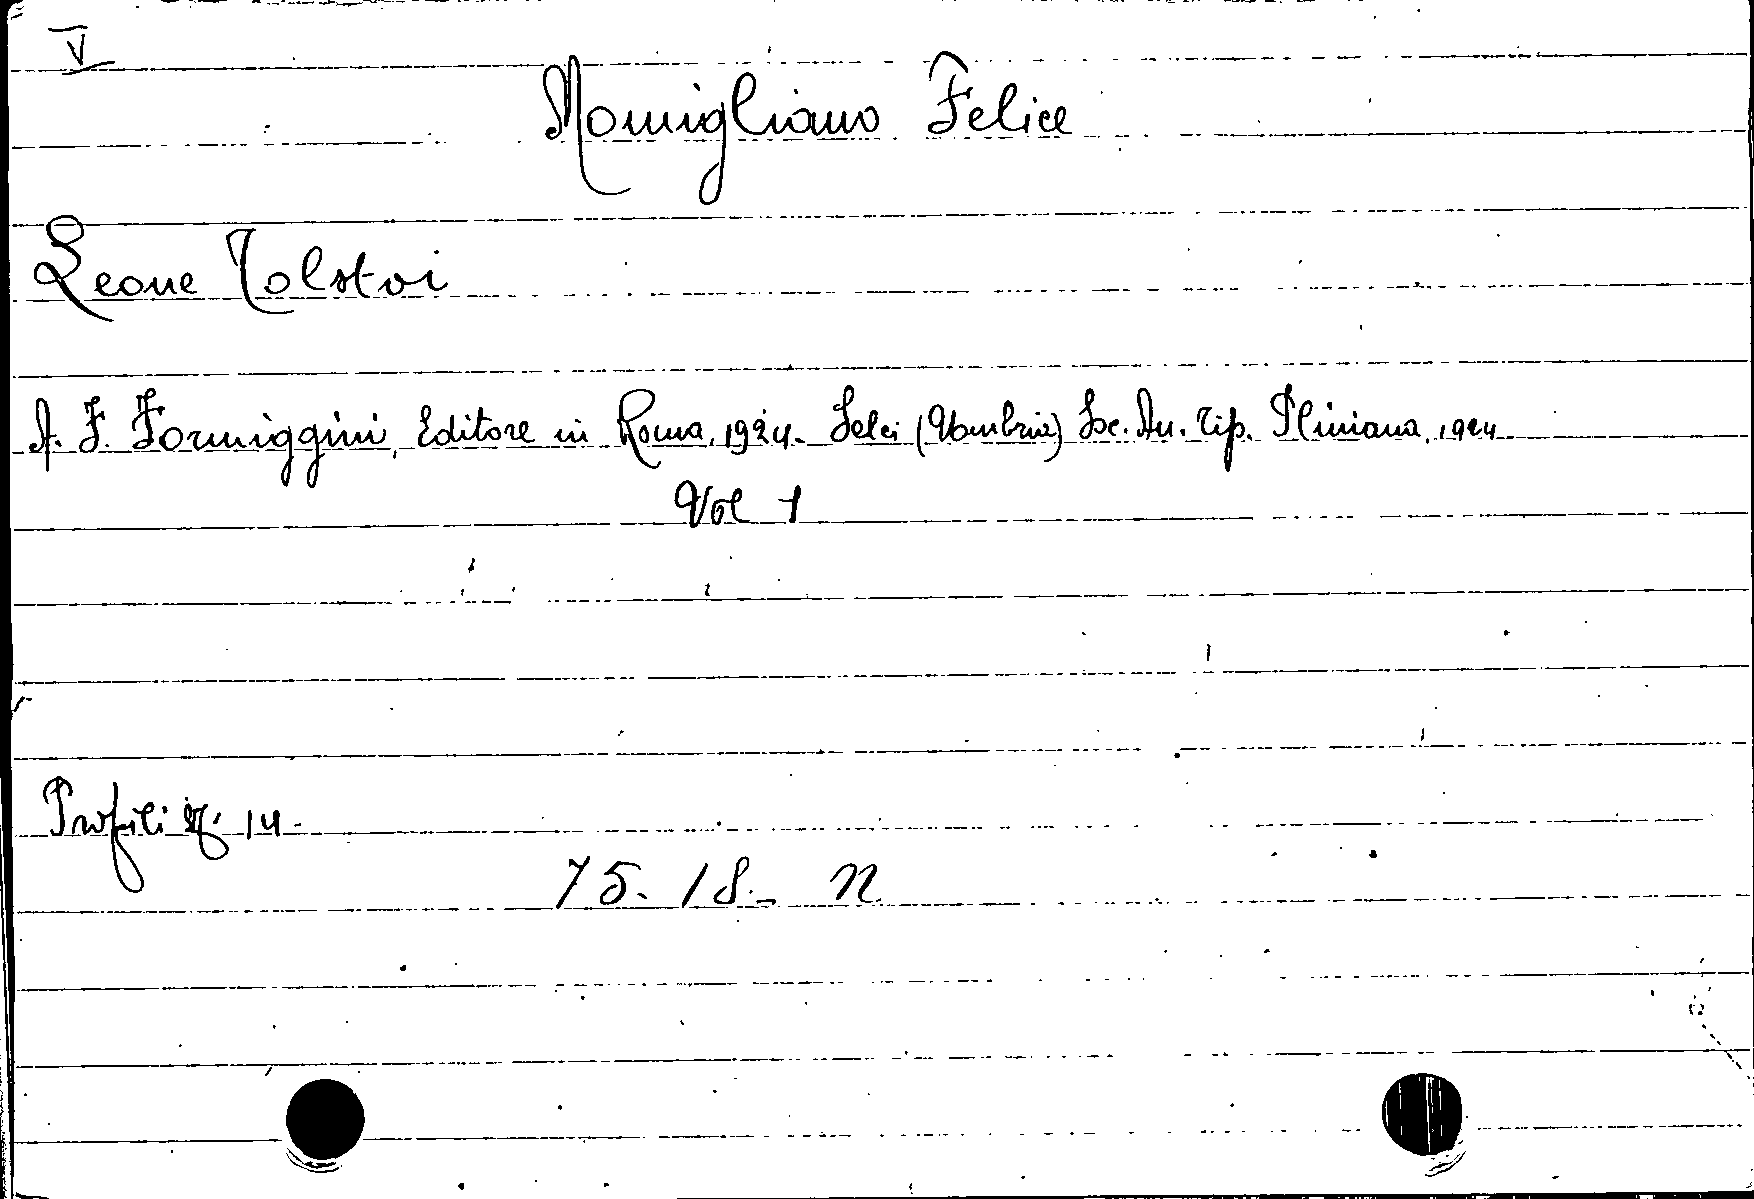 V
Momigliano Felice
Leone Tolstoi
A. F. Formiggini, Editore in Roma, 1924. Selci (Umbria) Soc. An. Tip. Pliniana, 1924
Vol 1
Profili N. 14.
75. 18. n